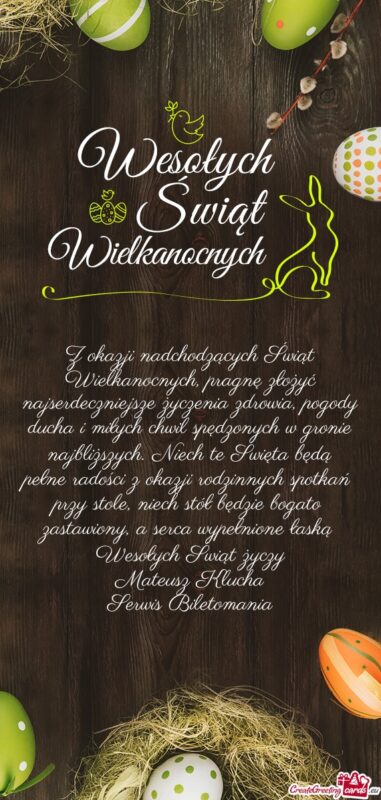 Wesołych
Świąt
Wielkanocnych
Z okazji nadchodzących Świąt
Wielkanocnych, pragnę złożyć
najserdeczniejsze życzenia zdrowia, pogody
ducha i miłych chwil spędzonych w gronie
najbliższych. Niech te Święta będą
pełne radości z okazji rodzinnych spotkań
przy stole, niech stół będzie bogato
zastawiony, a serca wypełnione łaską
Wesołych Świąt życzy
Mateusz Klucha
Serwis Biletomania
CreateGreetingcards.eu